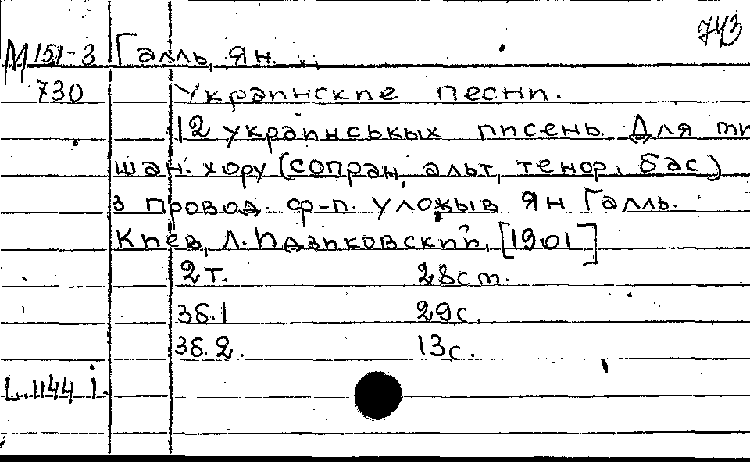 743
М 151-3 Галль, Ян.
730 Украпнскпе песнп.
12 украпнськых ппсень. Для мп
шан. хору (сопран, альт, тенор, бас)
з провод. ф-п. уложыв Ян Галль.
Кпев, Л. Идзпковскпй, [1901]
2 т. 28 ст.
Зб. 1 29 с.
Зб. 2. 13 с.
L. 1144 i.